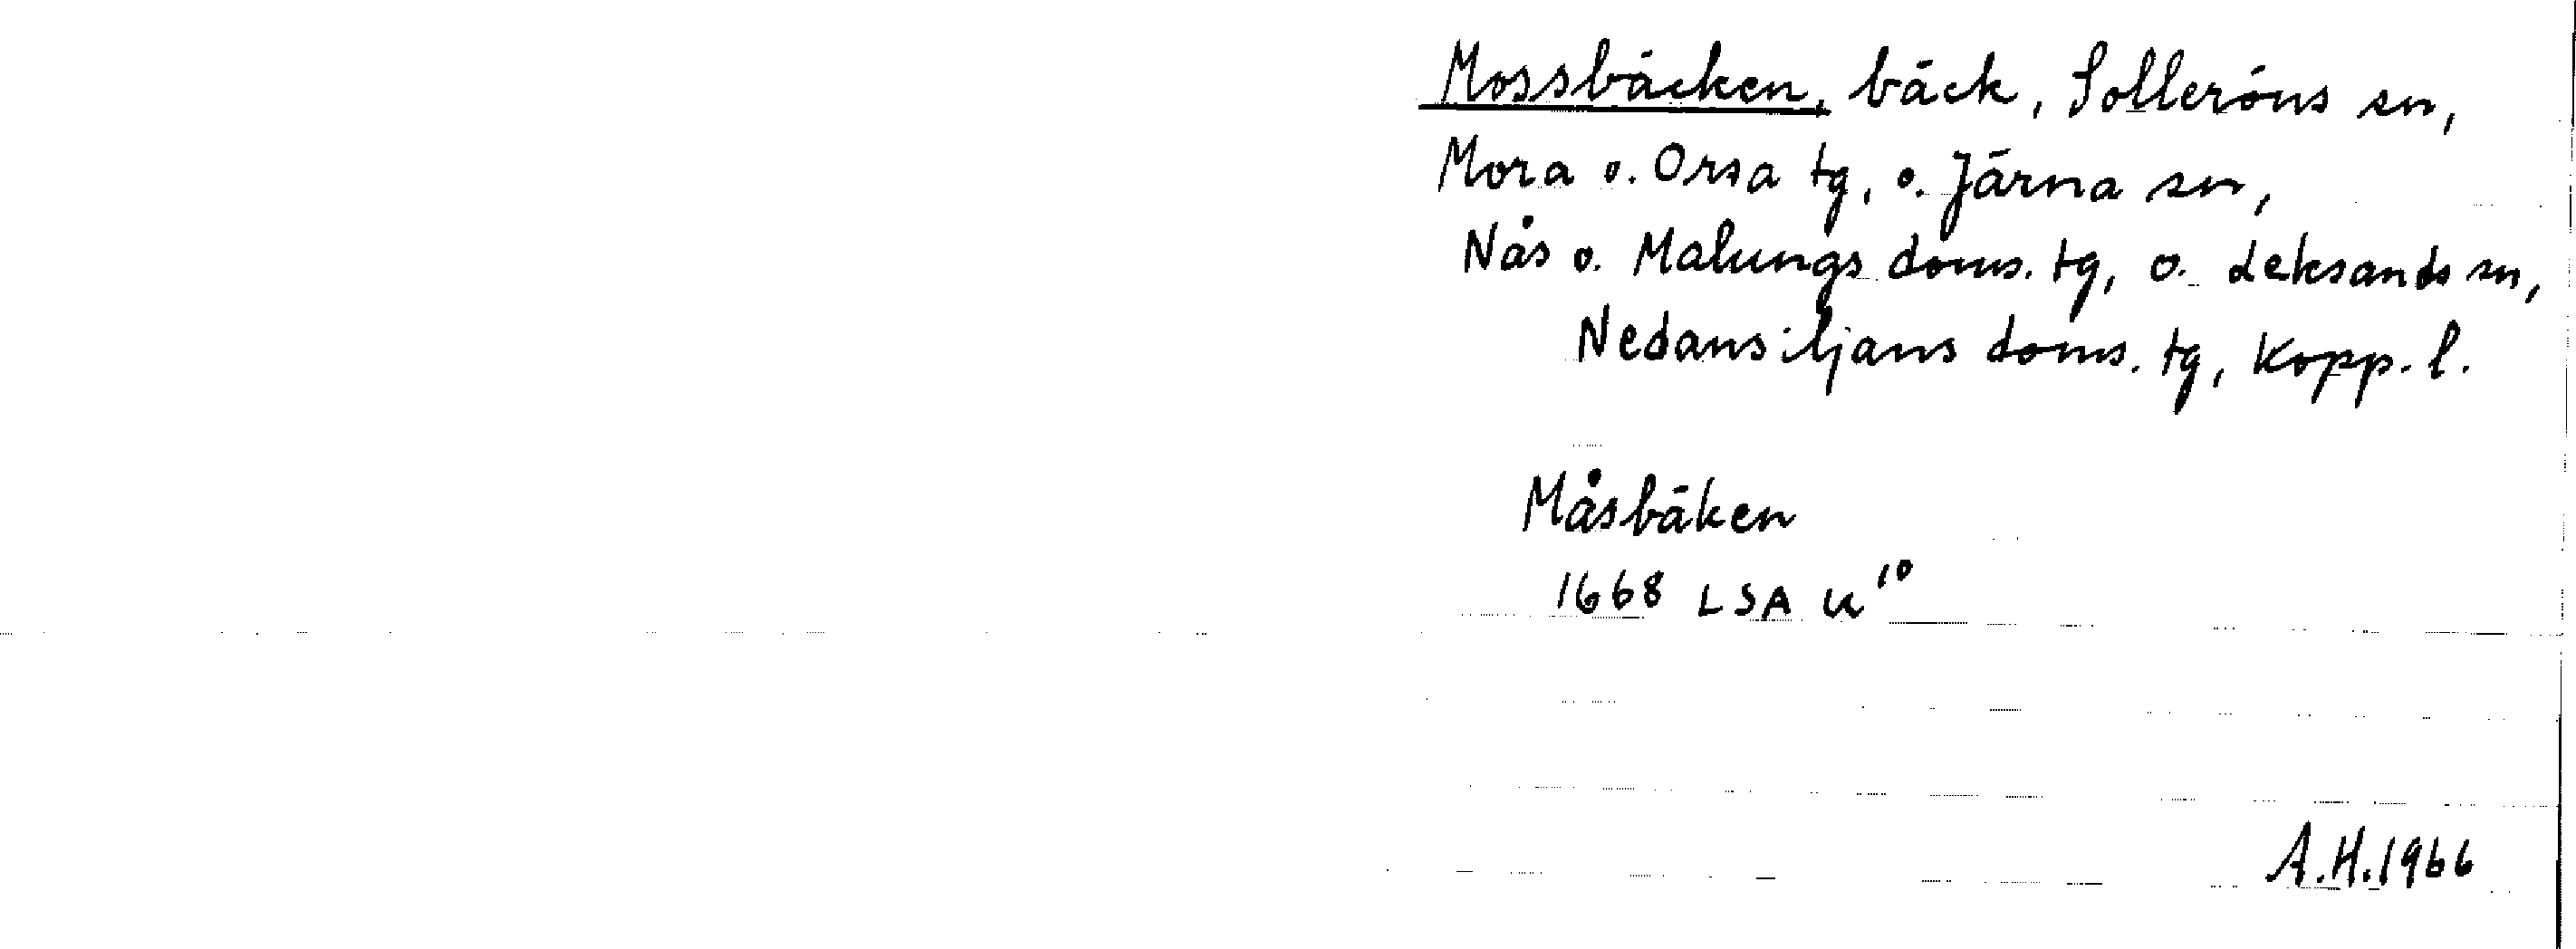 Mossbäcken, bäck, Solleröns sn,
Mora o. Orsa tg, o. Järna sn,
Nås o. Malungs doms. tg, o. Leksands sn,
Nedansiljans doms. tg, Kopp. l.
Måsbäken
1668 LSA U¹⁰
A.H.1966